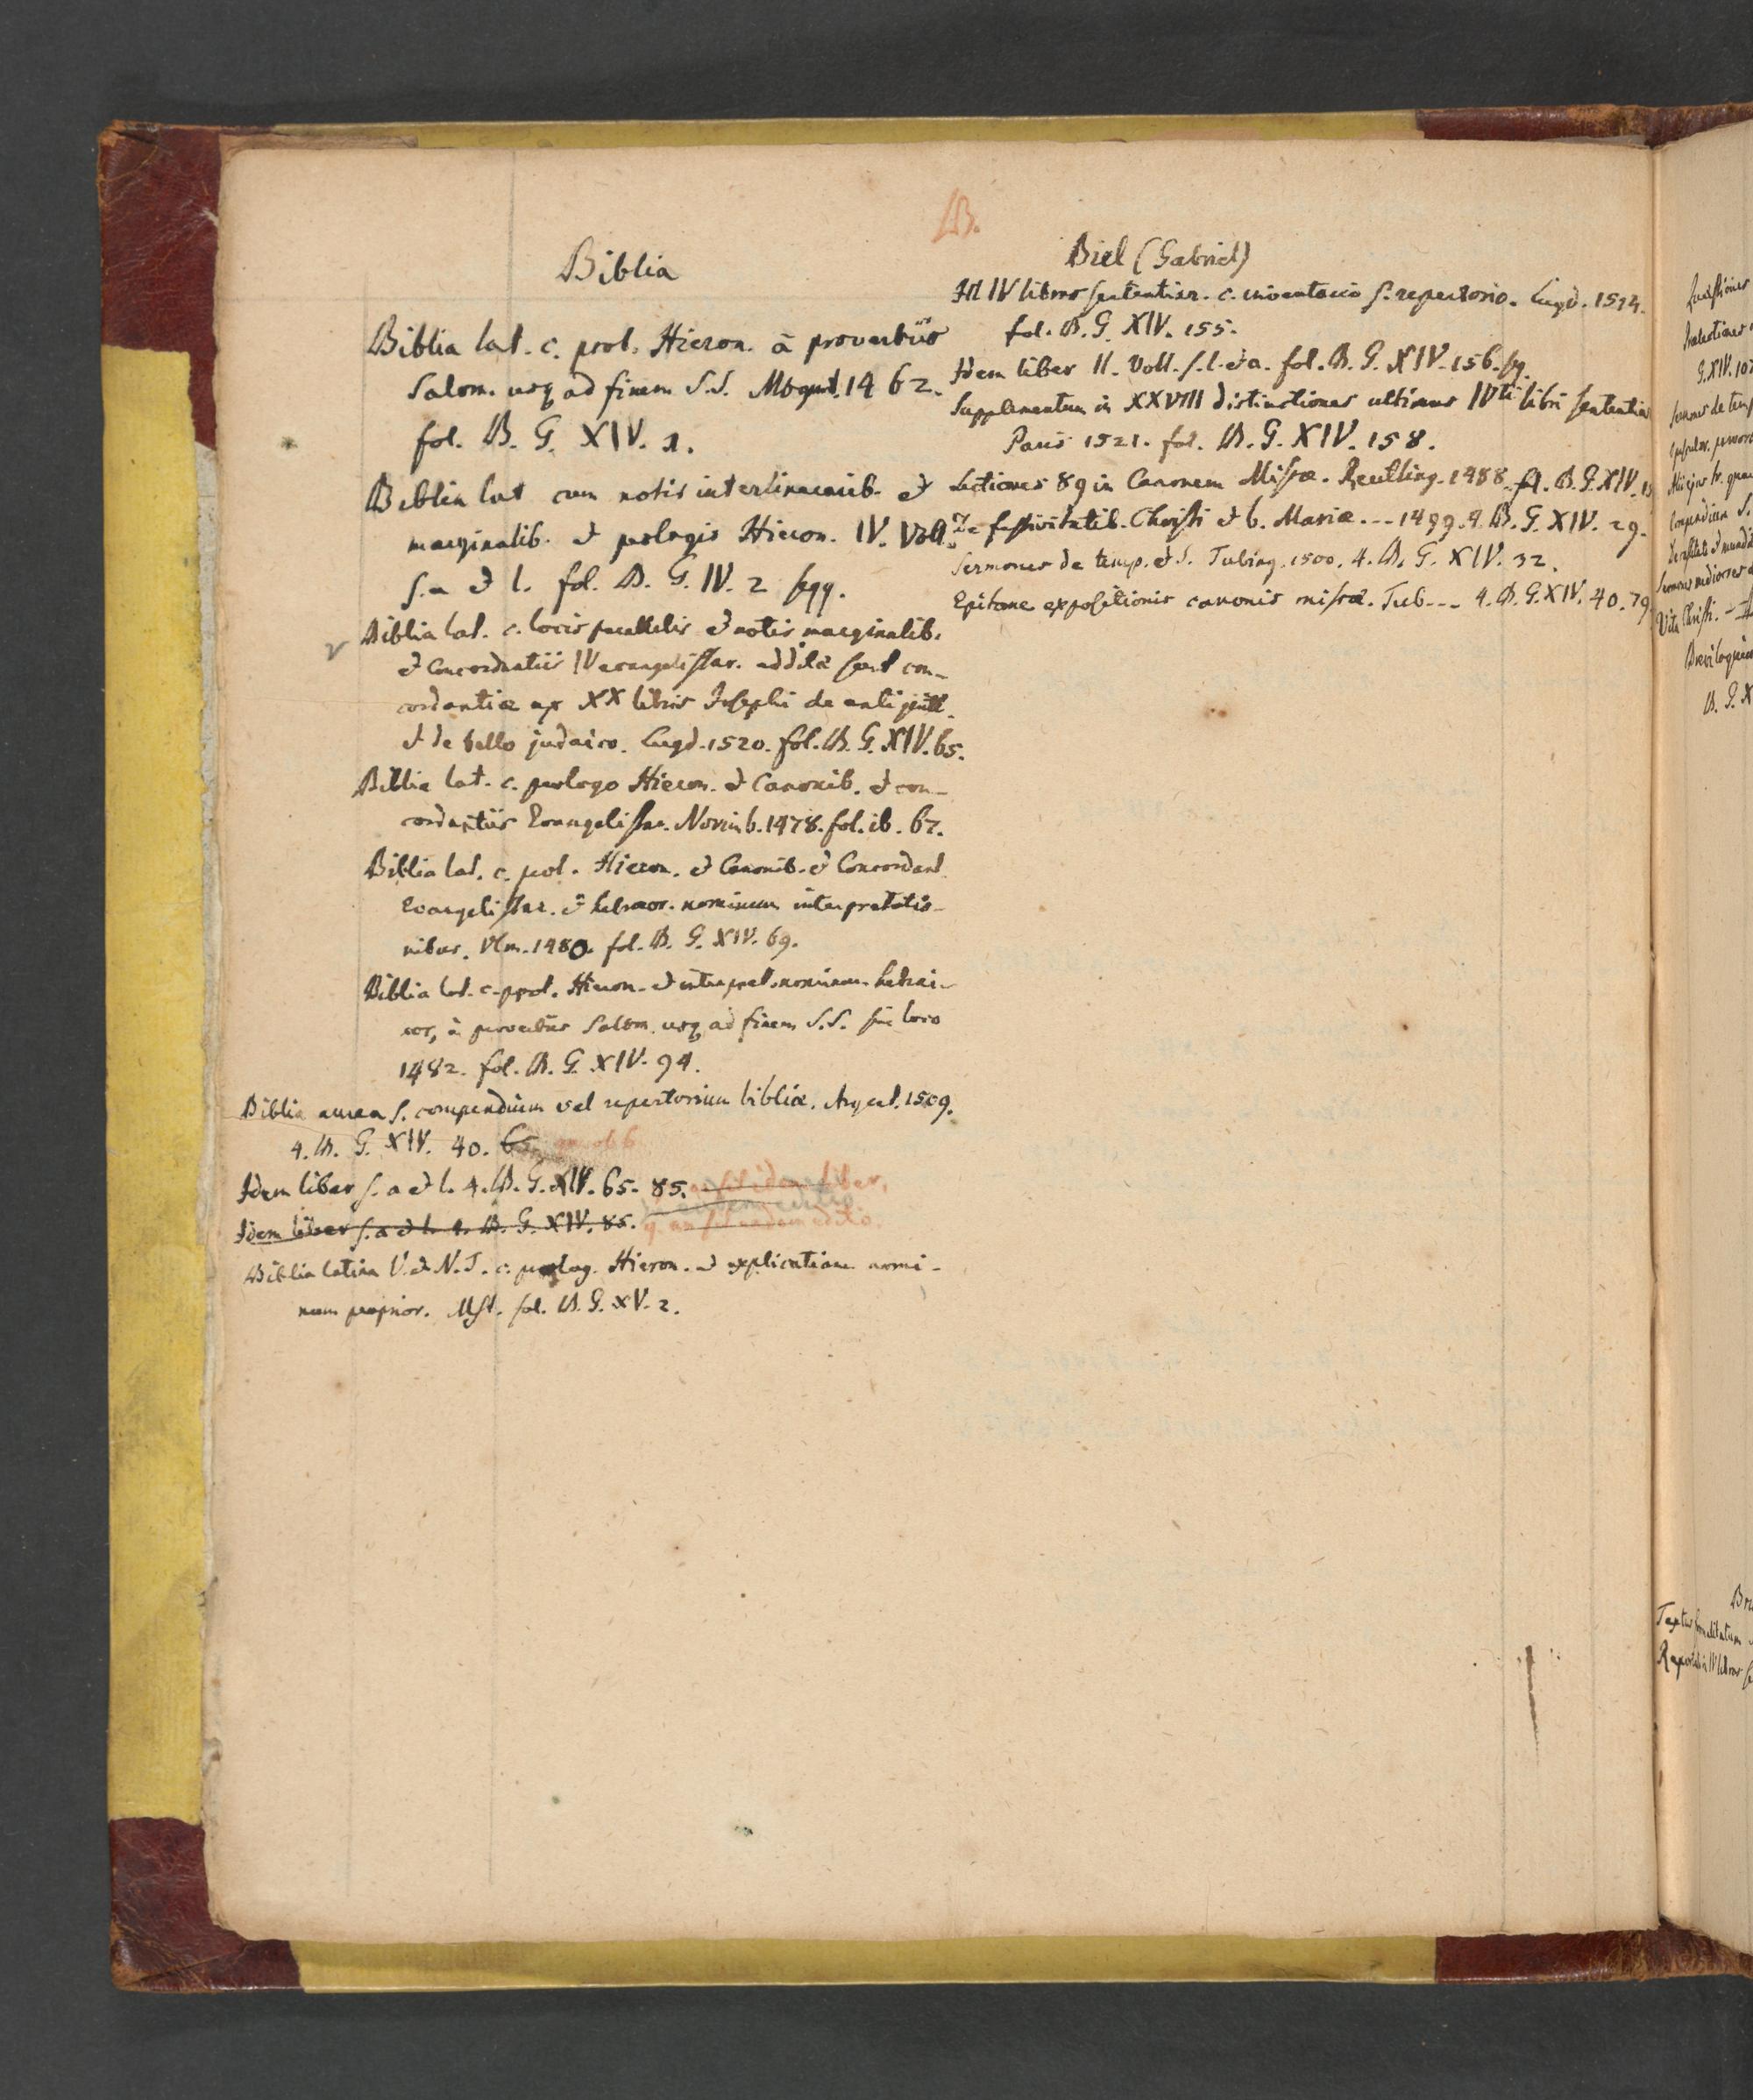 B.
Biblia
Biblia lat. c. prol. Hieron. à proverbiis
Salom. usq ad finem S.S. Mogunt. 1462.
fol. B. G. XIV. 1.
Biblia lat cum notis interlinearib. et
marginalib. et prologis Hieron. IV. Voll.
s. a et l. fol. B. G. IV. 2 sqq.
Biblia lat. c. locis parallelis et notis marginalib.
et Concordantiis IV evangelistar. addita sunt con-
cordantiæ ex XX libris Josephi de antiquitt.
et de bello judaico. Lugd. 1520. fol. B. G. XIV. 65.
Biblia lat. c. prologo Hieron. et Canonib. et con-
cordantiis Evangelistar. Norimb. 1478. fol. ib. 67.
Biblia lat. c. prol. Hieron. et Canonib. et Concordant
Evangelistar. et hebraeor. nominum interpretatio-
nibus. Ulm. 1480. fol. B. G. XIV. 69.
Biblia lat. c. prol. Hieron. et interpret. nominum hebrai-
cor, à proverbiis Salom. usq ad finem S.S. sine loco
1482. fol. B. G. XIV. 94.
Biblia aurea s. compendium vel repertorium bibliæ. Argent. 1509.
4. B. G. XIV. 40. 65.
Idem liber s. a et l. 4. B. G. XIV. 65. 85. idem liber,
Idem liber s. a et l. 4. B. G. XIV. 85. q. an sit eadem editio.
Biblia latina V. et N. T. c. prolog. Hieron. et explicatione nomi-
num proprior. Mst. fol. B. G. XV. 2.
Biel (Gabriel)
In IV libros sententiar. c. inventario s. repertorio. Lugd. 1514.
fol. B. G. XIV. 155.
Idem liber II. Voll. s. l. et a. fol. B. G. XIV. 156. sq.
Supplementum in XXVIII distinctiones ultimas IVti libri sententiar
Paris 1521. fol. B. G. XIV. 158.
Lectiones 89 in Canonem Missæ. Reutling. 1488. fol. B. G. XIV.
De festivitatib. Christi et b. Mariæ --- 1499. 4. B. G. XIV. 29.
Sermones de temp. et S. Tubing. 1500. 4. B. G. XIV. 32.
Epitome expositionis canonis missæ. Tub --- 4. B. G. XIV. 40. 79
G. XIV. 107
Sermones de temp
Vita Christi.
B. G. X